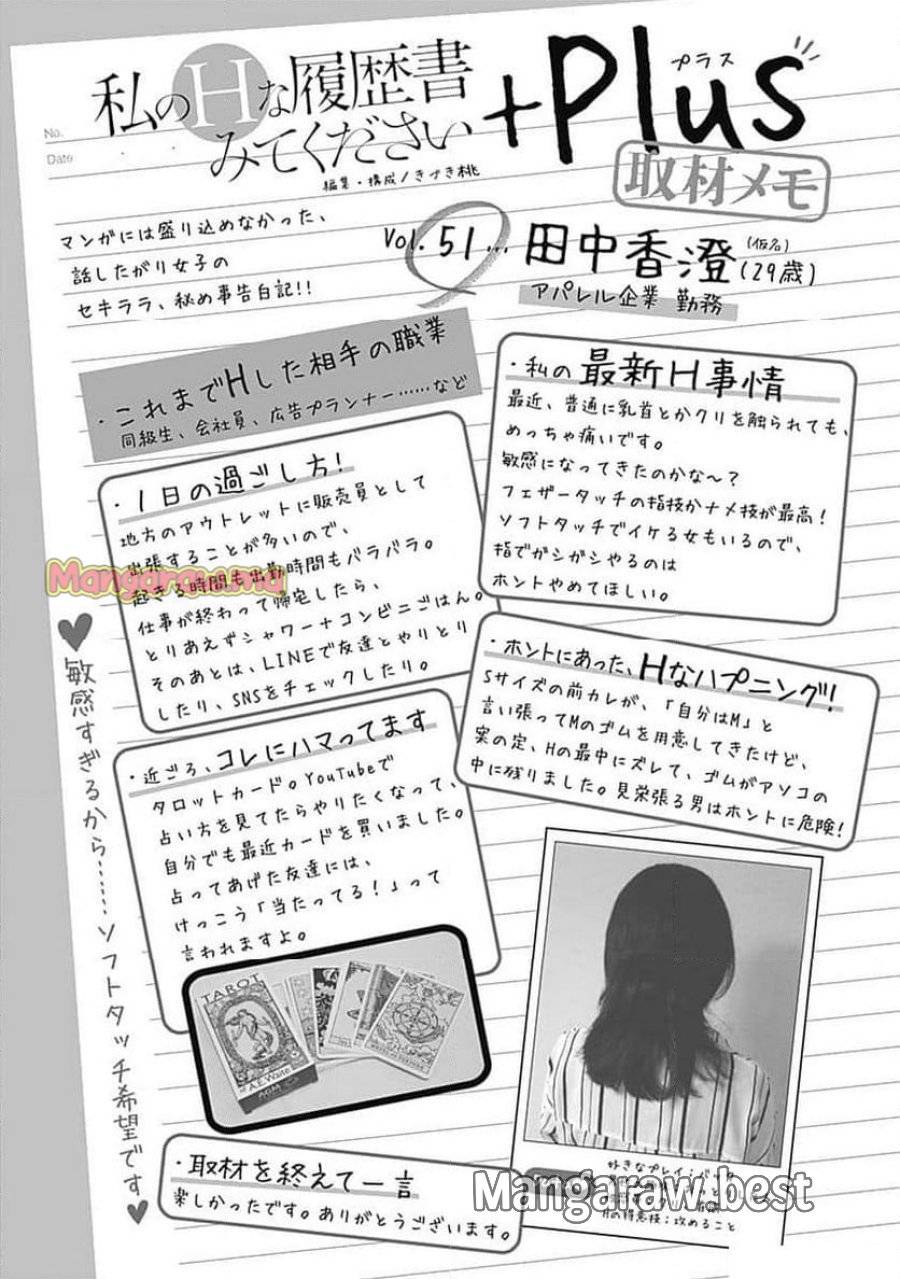 No.
Date
私のHな履歴書
みてください
+Plus
プラス
取材メモ
編集・構成/きづき桃
マンガには盛り込めなかった、
話したがり女子の
セキララ、秘め事告白記!!
Vol.51…
田中香澄
(仮名)
(29歳)
アパレル企業 勤務
・これまでHした相手の職業
同級生、会社員、広告プランナー……など
・1日の過ごし方!
地方のアウトレットに販売員として
出張することが多いので、
起きる時間も出勤時間もバラバラ。
仕事が終わって帰宅したら、
とりあえずシャワー+コンビニごはん。
そのあとは、LINEで友達とやりとり
したり、SNSをチェックしたり。
・近ごろ、コレにハマってます
タロットカード。YouTubeで
占い方を見てたらやりたくなって、
自分でも最近カードを買いました。
占ってあげた友達には、
けっこう「当たってる!」って
言われますよ。
TAROT
A.E. Waite
・私の最新H事情
最近、普通に乳首とかクリを触られても、
めっちゃ痛いです。
敏感になってきたのかな~?
フェザータッチの指技かナメ技が最高!
ソフトタッチでイケる女もいるので、
指でガシガシやるのは
ホントやめてほしい。
・ホントにあった、Hなハプニング!
Sサイズの前カレが、「自分はM」と
言い張ってMのゴムを用意してきたけど、
実の定、Hの最中にズレて、ゴムがアソコの
中に残りました。見栄張る男はホントに危険!
♥敏感すぎるから……ソフトタッチ希望です♥
・取材を終えて一言
楽しかったです。ありがとうございます。
好きなプレイ:バック
Hの得意技:攻めること
Mangaraw.mu
Mangaraw.best